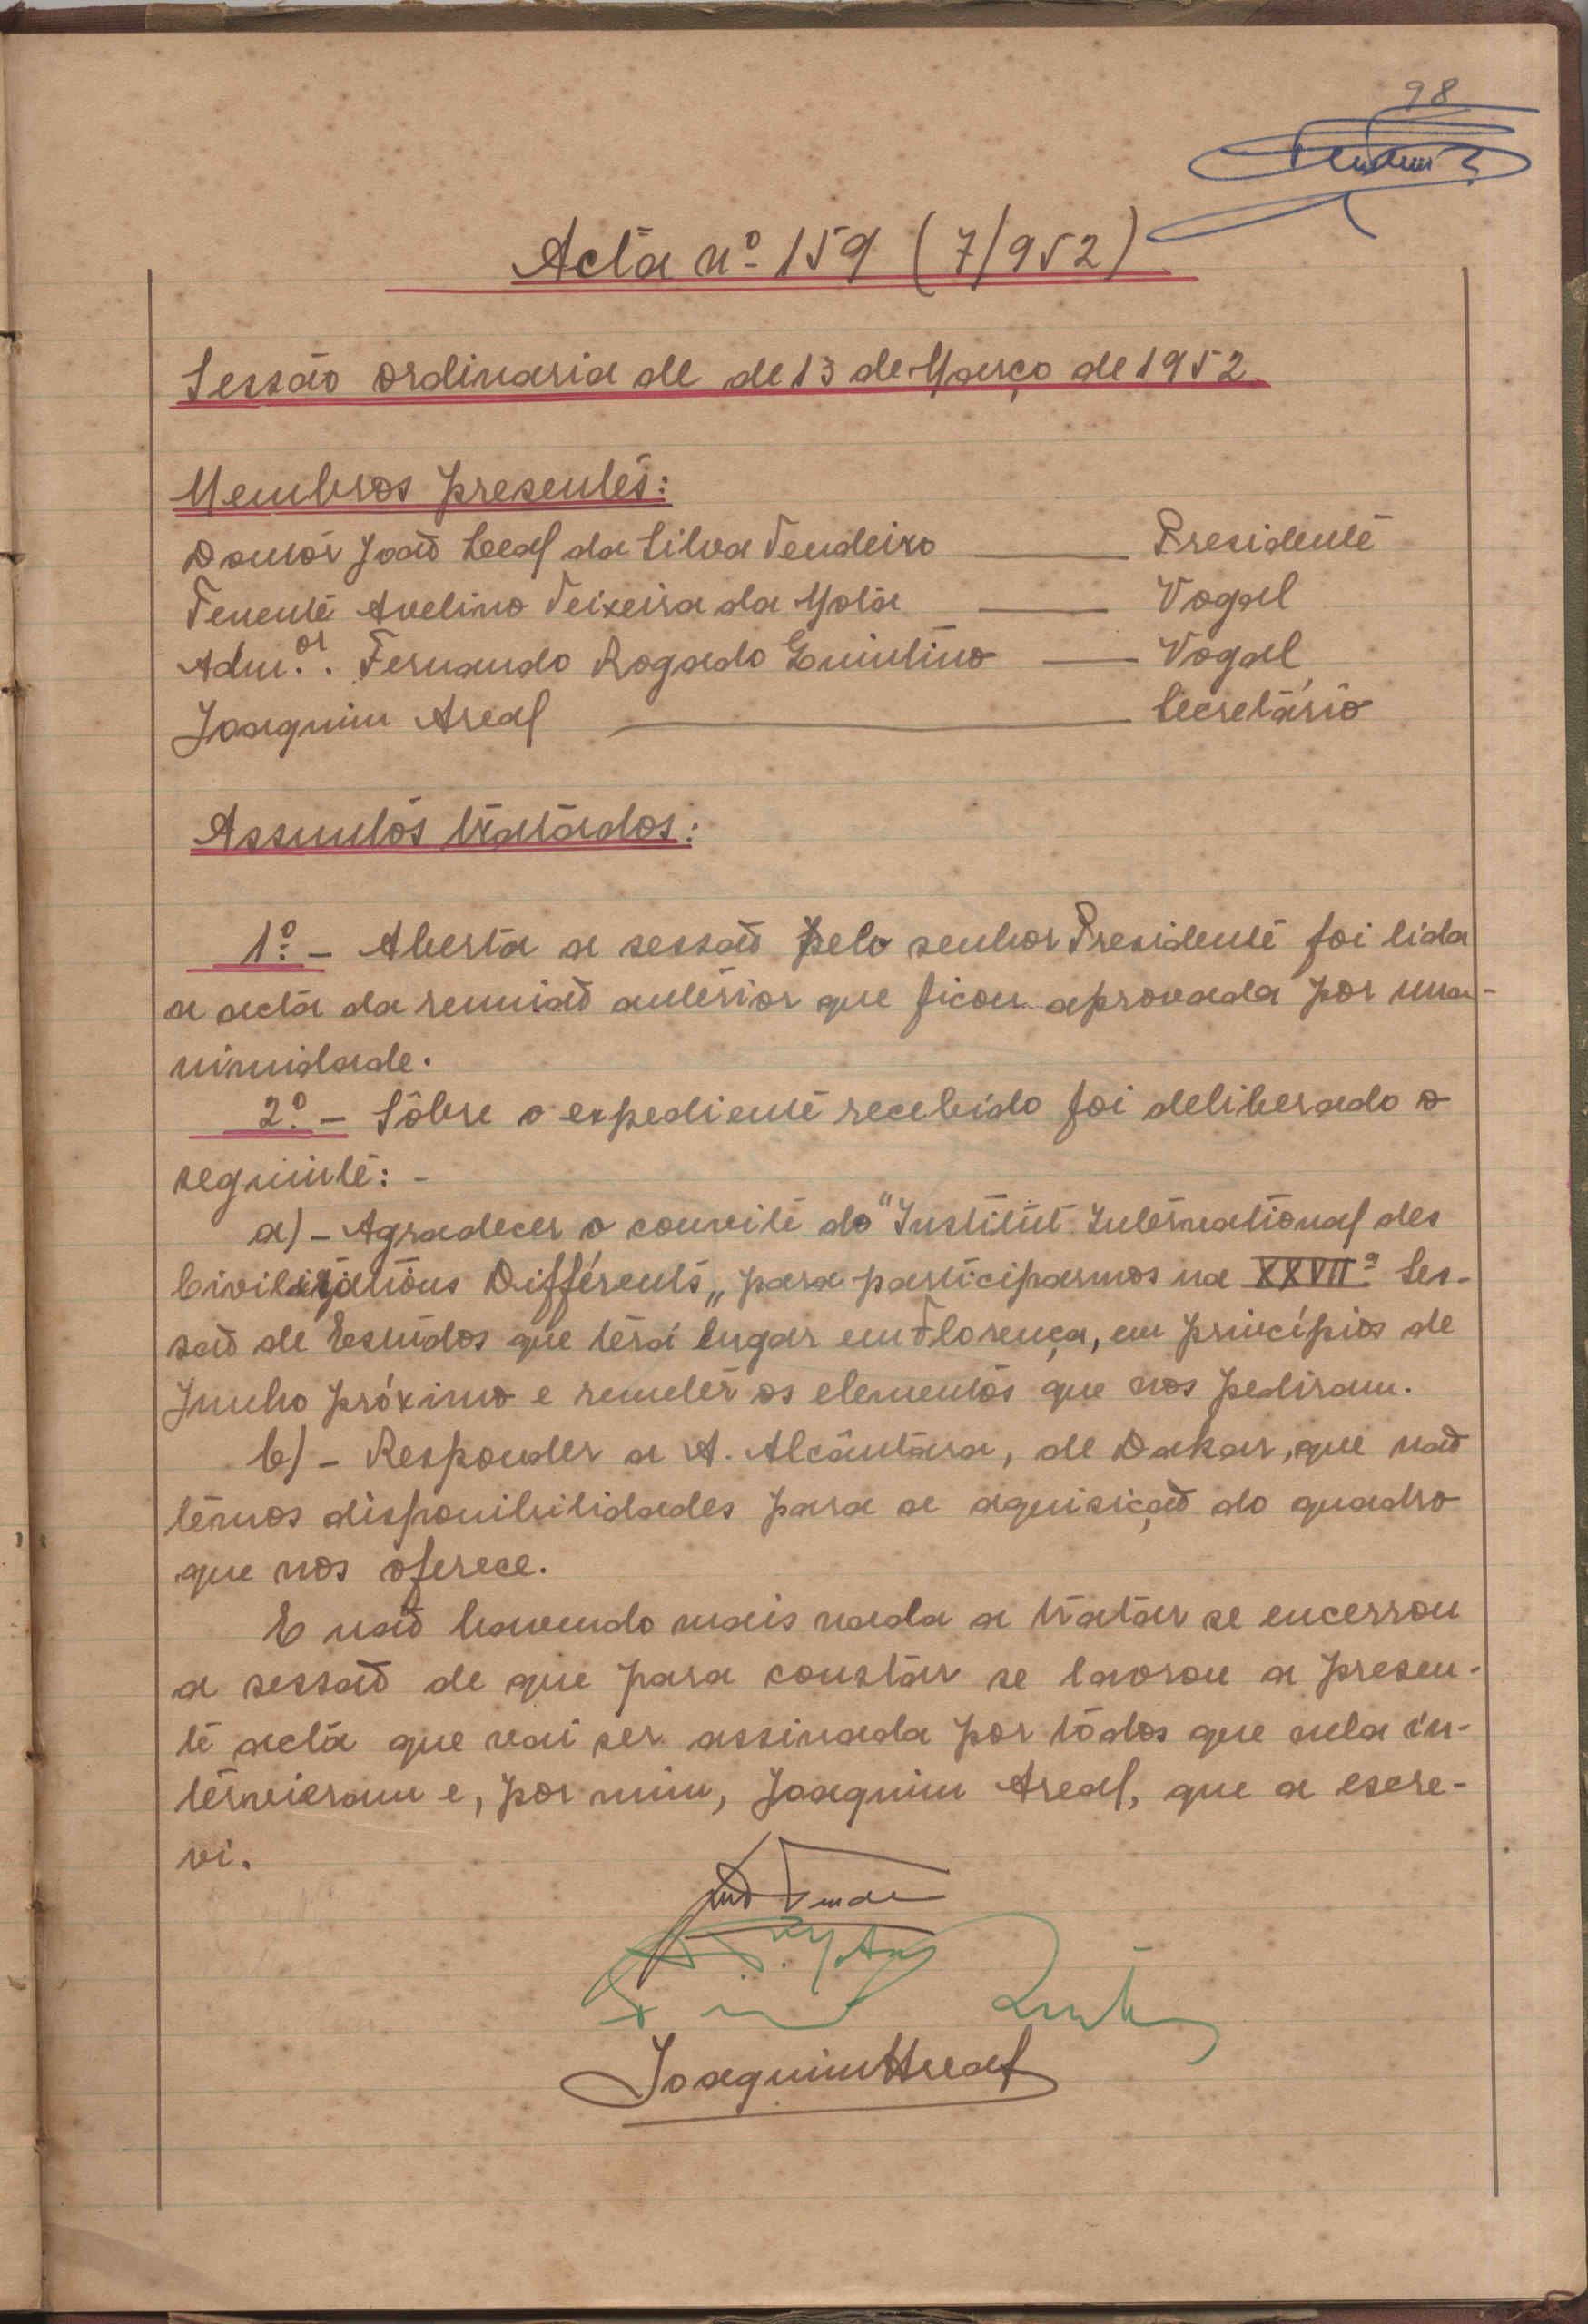 98
Acta nº 159 (7/952)
Sessão ordinaria de de 13 de Março de 1952.
Membros presentes:
Doutor João Leal da Silva Tendeiro — Presidente
Tenente Avelino Teixeira da Mota — Vogal
Adm.or. Fernando Rogado Quintino — Vogal
Joaquim Areal — Secretário
Assuntos tratados:
1º. - Aberta a sessão pelo senhor Presidente foi lida
a acta da reunião anterior que ficou aprovada por una-
nimidade.
2º. - Sôbre o expediente recebido foi deliberado o
seguinte: -
a) - Agradecer o convite do "Institut International des
Civilizations Différents„ para participarmos na XXVIIª Ses-
são de Estudos que terá lugar em Florença, em princípios de
Junho próximo e remeter os elementos que nos pediram.
b) - Responder a A. Alcântara, de Dakar, que não
temos disponibilidades para a aquisição do quadro
que nos oferece.
E não havendo mais nada a tratar se encerrou
a sessão de que para constar se lavrou a presen-
te acta que vai ser assinada por tôdos que nela in-
tervieram e, por mim, Joaquim Areal, que a escre-
vi.
Joaquim Areal